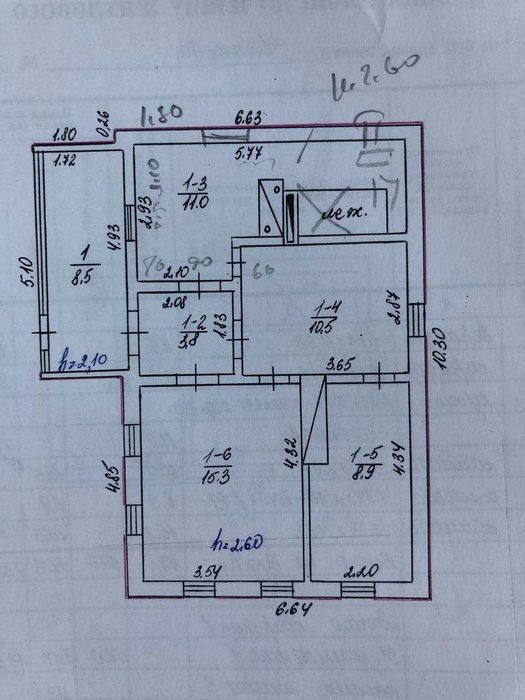 н.2.60
1.80
6.63
0,26
1.80
1.72
5.77
1-3
11.0
2.93
4.93
леж.
1
8,5
5.10
90
60
2.10
2.08
1-2
3,8
1.83
1-4
10,5
2.87
10.30
h=2,10
3.65
1-6
15.3
4.32
1-5
8,9
4.34
4.85
h=2.60
3.54
2.20
6.64